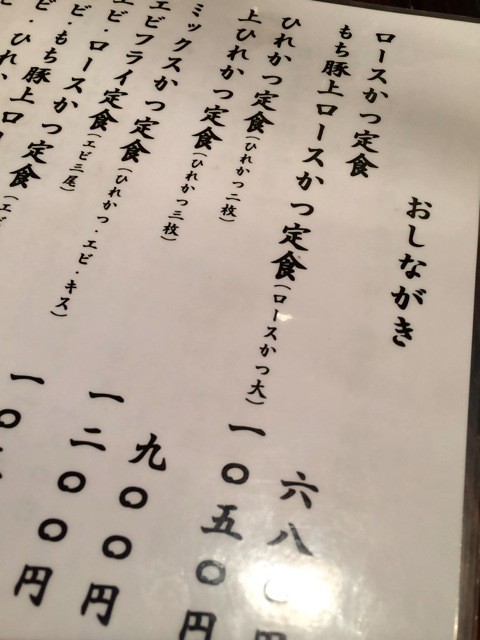 おしながき
ロースかつ定食 六八〇円
もち豚上ロースかつ定食(ロースかつ大) 一〇五〇円
ひれかつ定食(ひれかつ二枚) 九〇〇円
上ひれかつ定食(ひれかつ三枚) 一二〇〇円
ミックスかつ定食(ひれかつ・エビ・キス) 一〇
エビフライ定食(エビ三尾)
エビ・ロースかつ定食
ビ・もち豚上ロ
ビ・ひれか